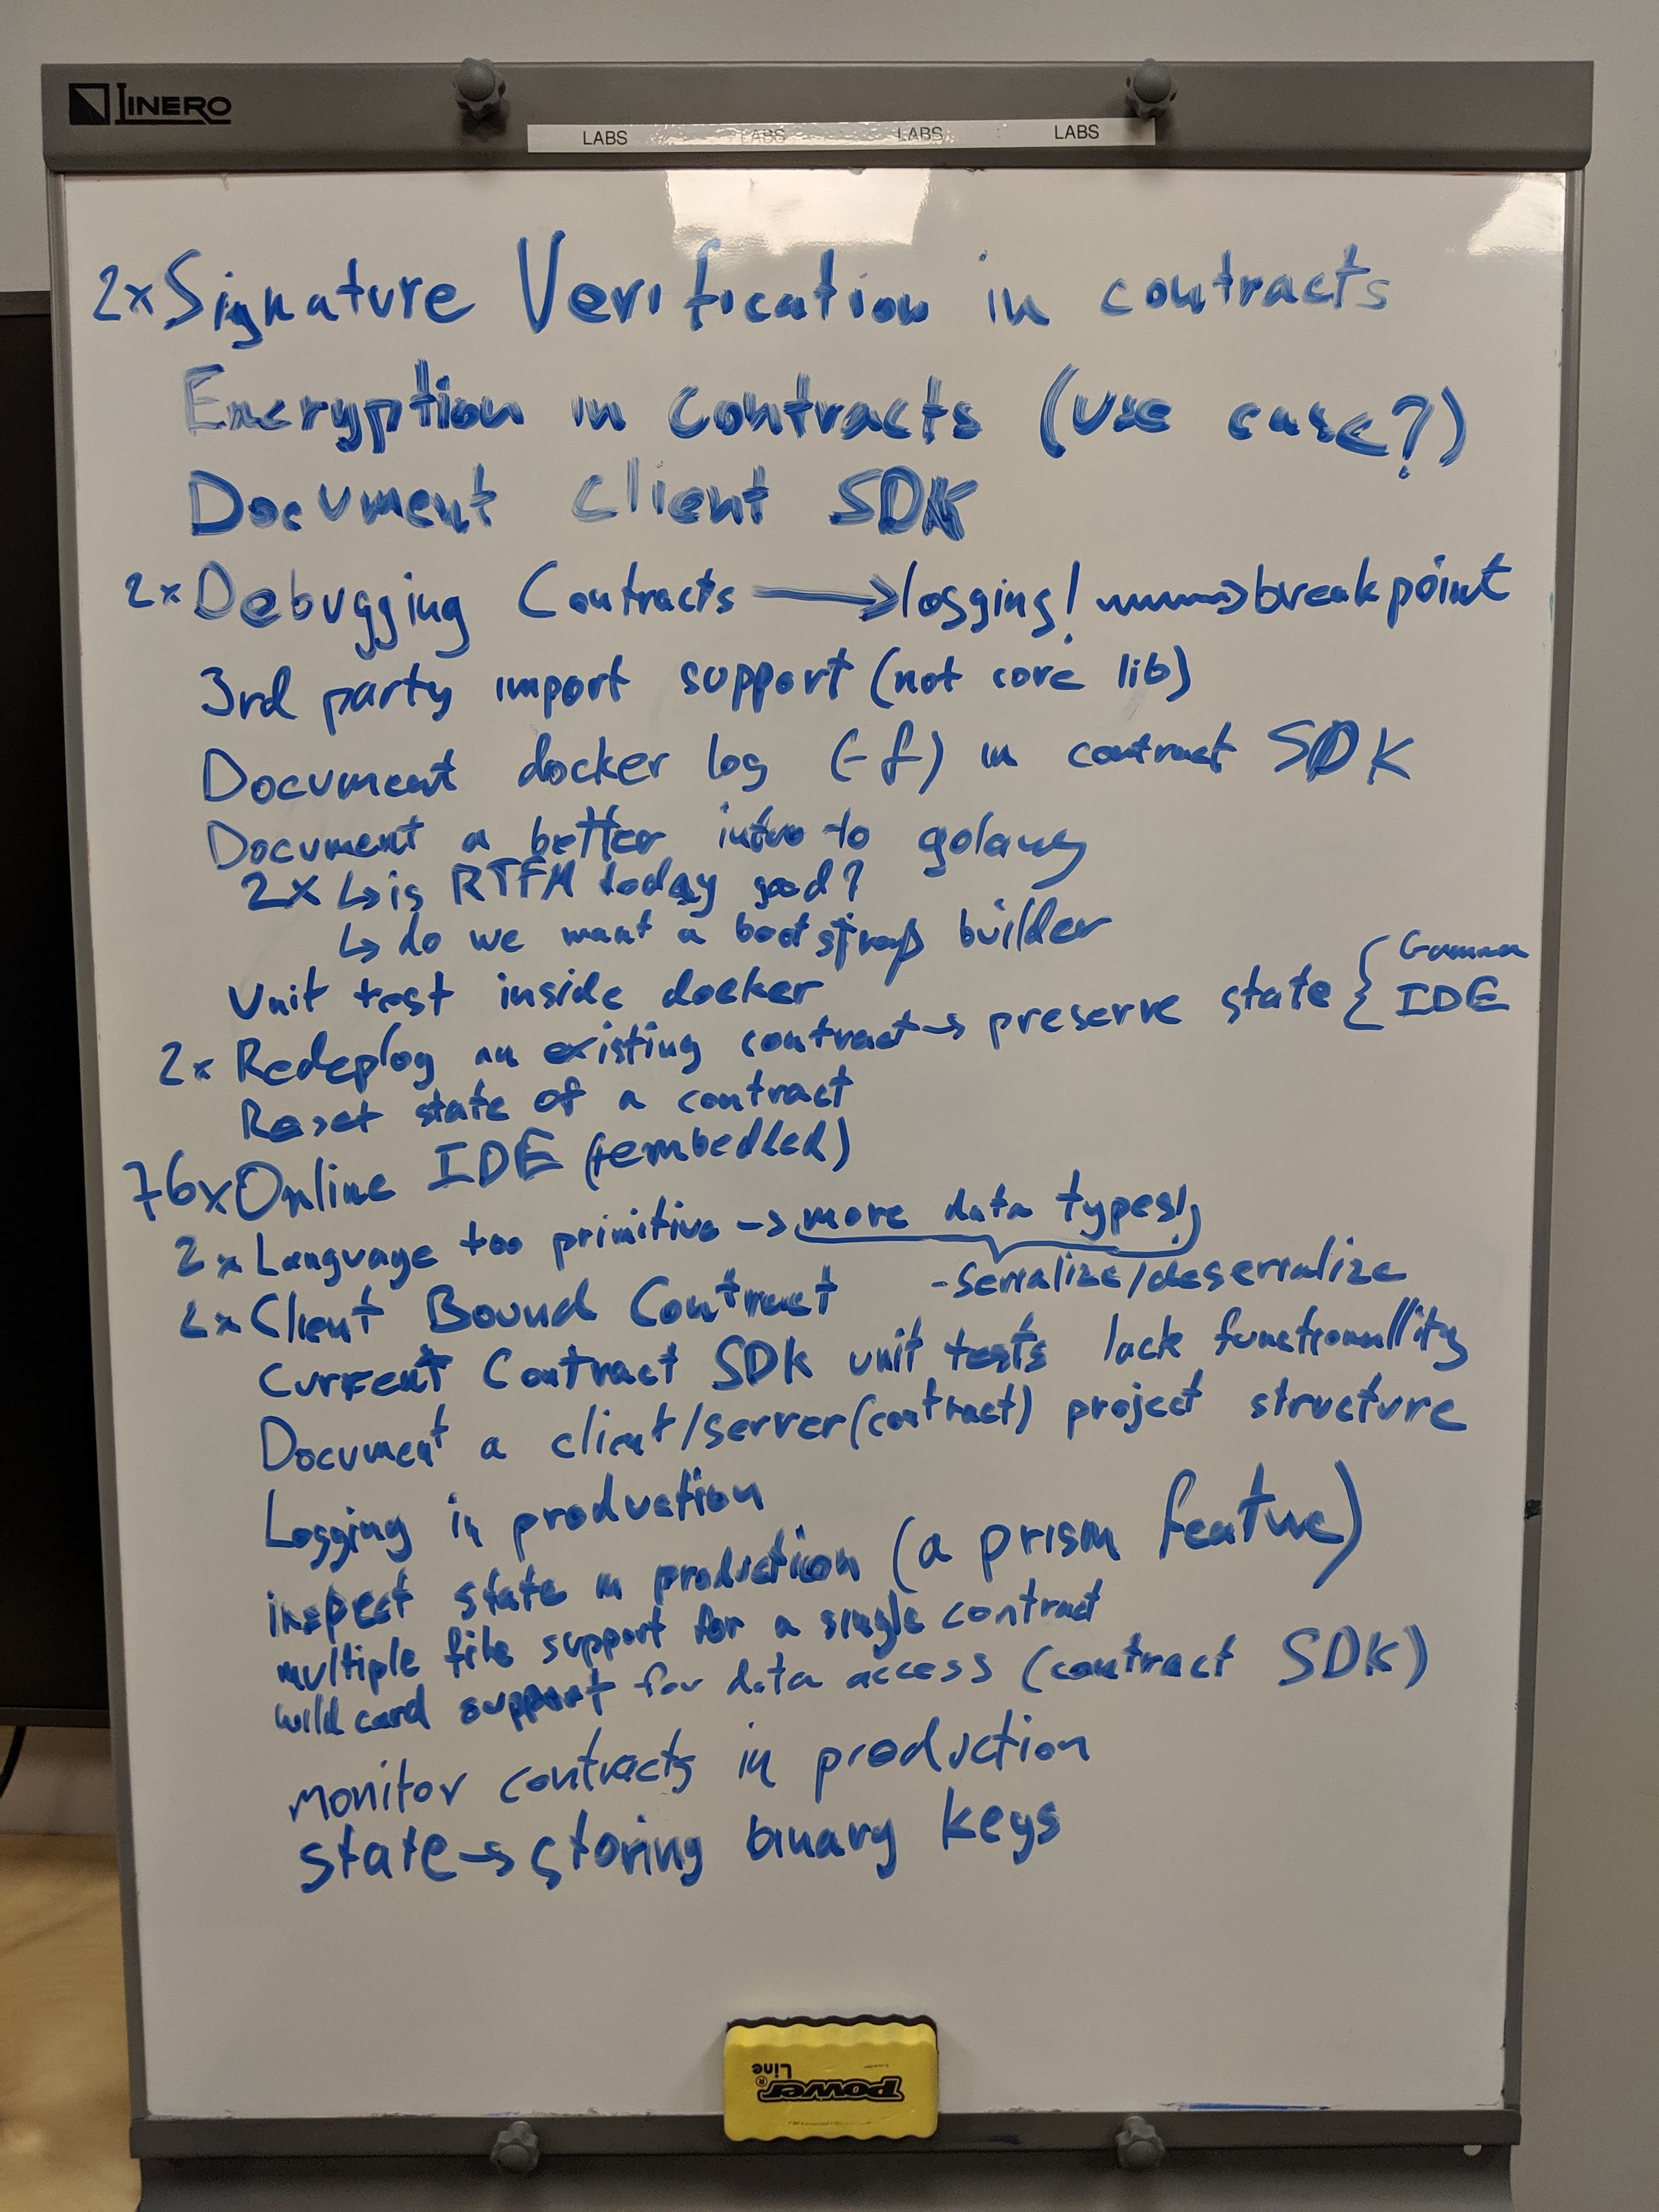 LINERO
LABS LABS LABS LABS
2x Signature Verification in contracts
Encryption in contracts (use case?)
Document client SDK
2x Debugging Contracts → logging! → breakpoint
3rd party import support (not core lib)
Document docker log (-f) in contract SDK
Document a better intro to golang
2x ↳ is RTFM today good?
↳ do we want a bootstrap builder
Unit test inside docker
2x Redeploy an existing contract → preserve state { Gamma IDE
Reset state of a contract
76x Online IDE (+embedded)
2x Language too primitive → more data types!
- Serialize/deserialize
2x Client Bound Contract
Current Contract SDK unit tests lack functionallity
Document a client/server(contract) project structure
Logging in production
inspect state in production (a prism feature)
multiple file support for a single contract
wildcard support for data access (contract SDK)
monitor contracts in production
state → storing binary keys
power® Line